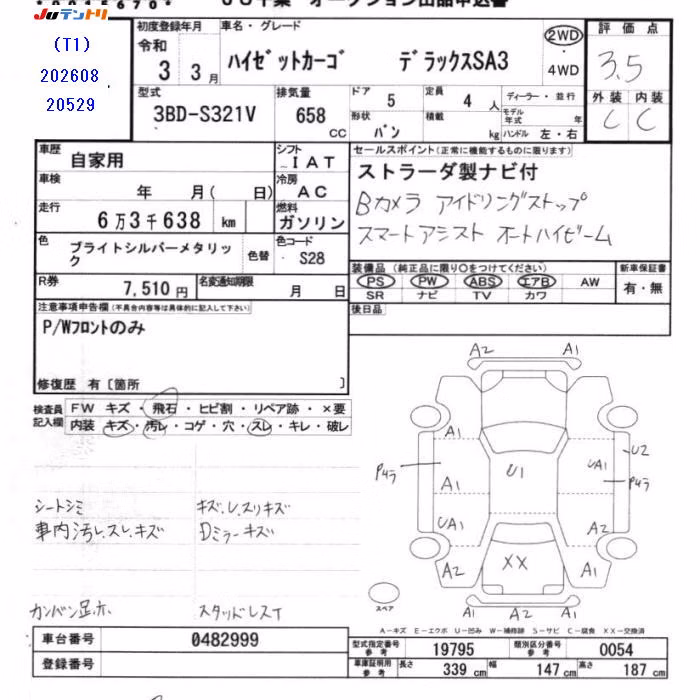 JUテントリ
(T1)
202608
20529
初度登録年月 車名・グレード 評価点
令和 3 3月 ハイゼットカーゴ デラックスSA3 2WD・4WD 3.5
外装 内装
C C
型式 排気量 ドア 5 定員 4 人 ディーラー・並行
3BD-S321V 658 CC 形状 バン 積載 kg モデル年式 年
ハンドル 左・右
車歴 自家用 シフト IAT セールスポイント(正常に機能するものに限ります)
ストラーダ製ナビ付
車検 年 月( 日) 冷房 AC
Bカメラ アイドリングストップ
走行 6万3千638 km 燃料 ガソリン
スマートアシスト オートハイビーム
色 ブライトシルバーメタリック 色替 色コード S28
装備品(純正品に限り○をつけてください) 新車保証書
PS PW ABS エアB AW 有・無
SR ナビ TV カワ
R券 7,510円 名変通知期限 月 日
後日品
注意事項申告欄(不具合内容等は具体的に記入して下さい)
P/Wフロントのみ
修復歴 有〔箇所 〕
検査員記入欄 FW キズ・飛石・ヒビ割・リペア跡・×要
内装 キズ・汚レ・コゲ・穴・スレ・キレ・破レ
A2 A1
A1 U1 UA1 U2
P4ラ P4ラ
A1
UA1 A2
XX
A2 A1
スペア
A2 A2
シートシミ キズ、U、スリキズ
車内汚レ、スレ、キズ Dミラーキズ
カンバン足赤 スタッドレスT
A-キズ E-エクボ U-凹み W-補修跡 S-サビ C-腐食 XX-交換済
車台番号 0482999
登録番号
型式指定番号 参考 19795 類別区分番号 参考 0054
車庫証明用 参考 長さ 339 cm 幅 147 cm 高さ 187 cm